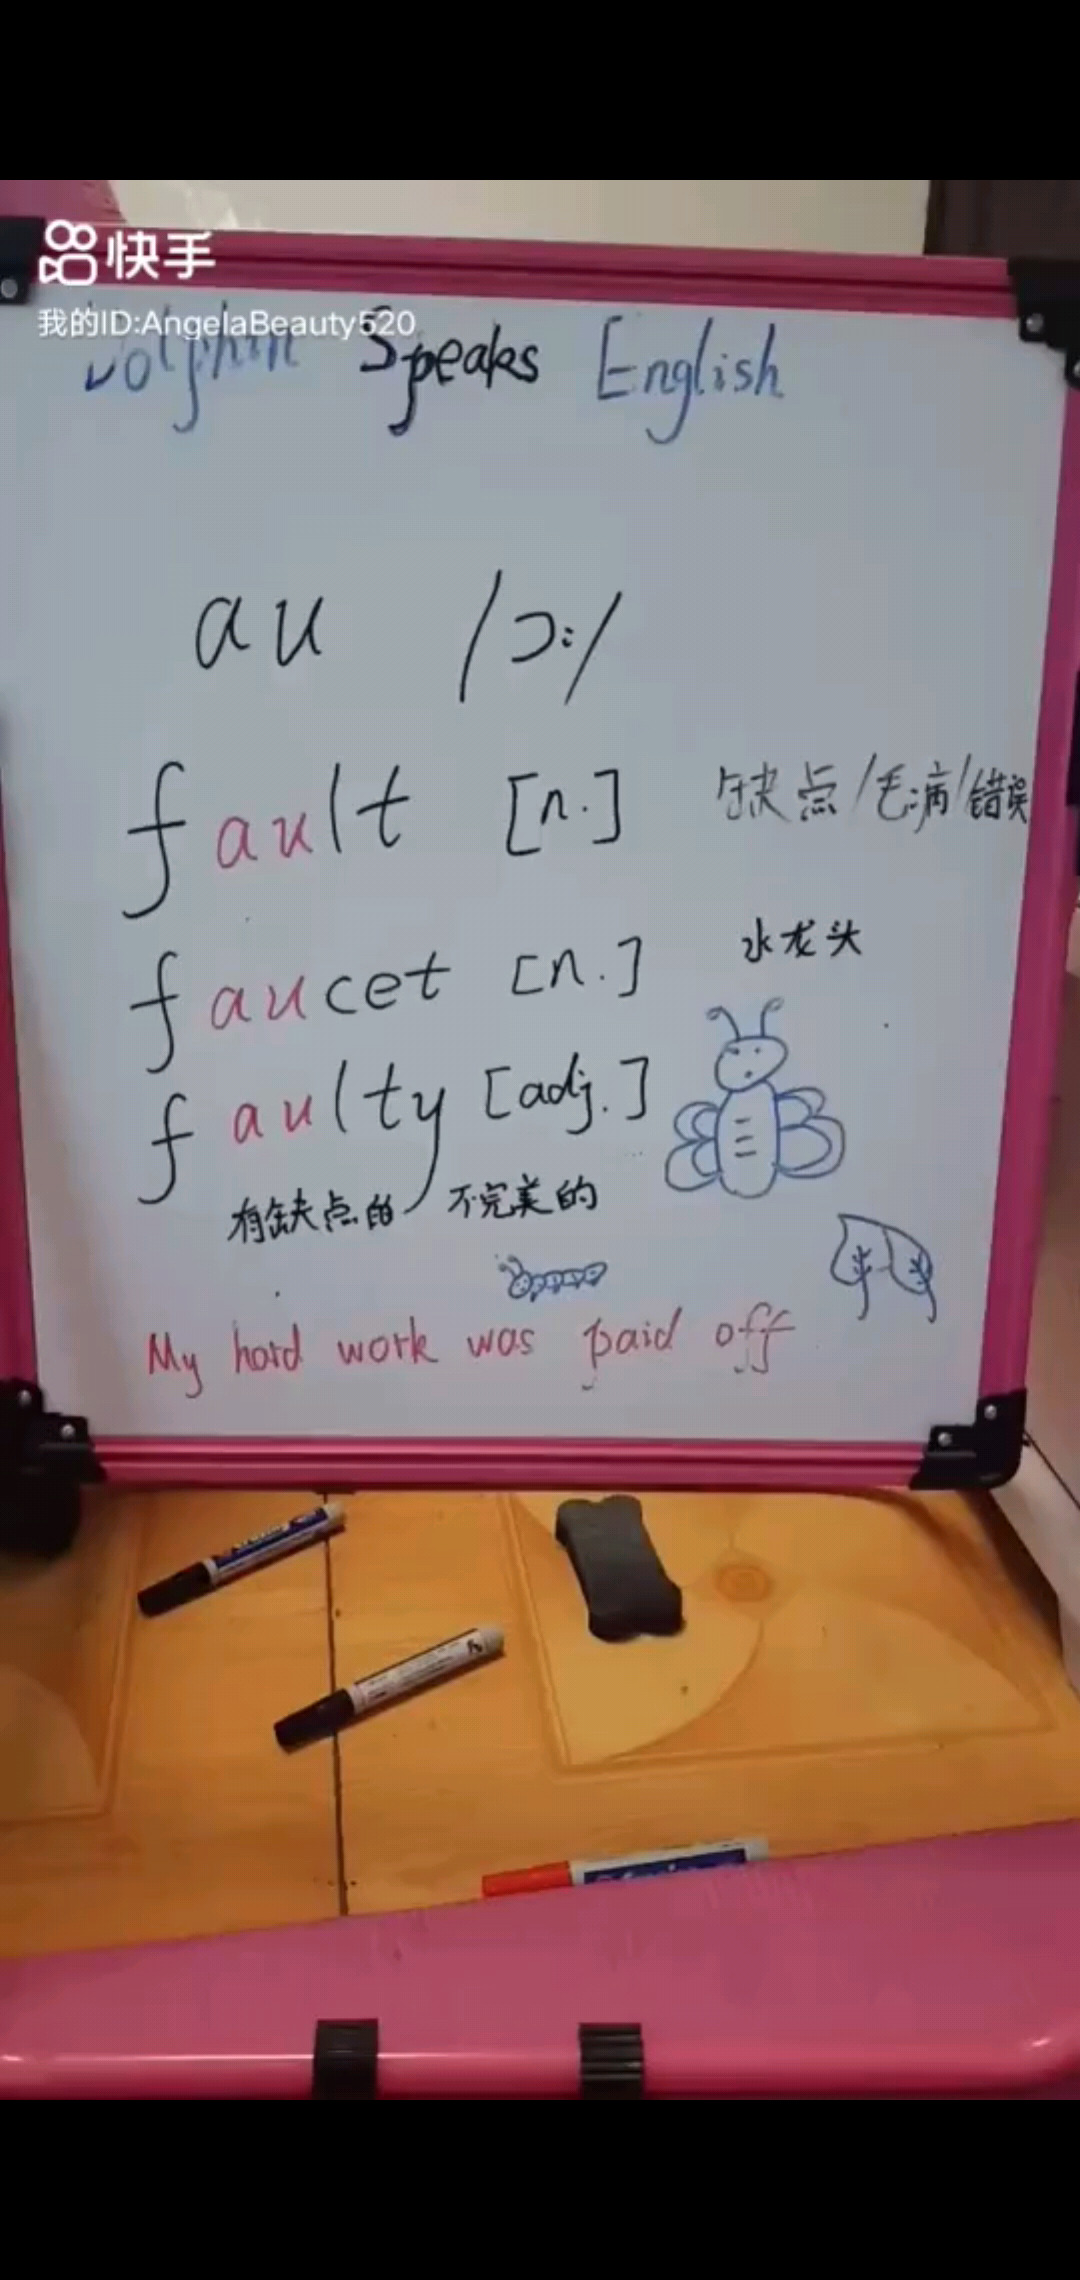 快手
我的ID:AngelaBeauty520
Dolphin Speaks English
au /ɔ:/
fault [n.] 缺点/毛病/错误
faucet [n.] 水龙头
faulty [adj.]
有缺点的 不完美的
My hard work was paid off